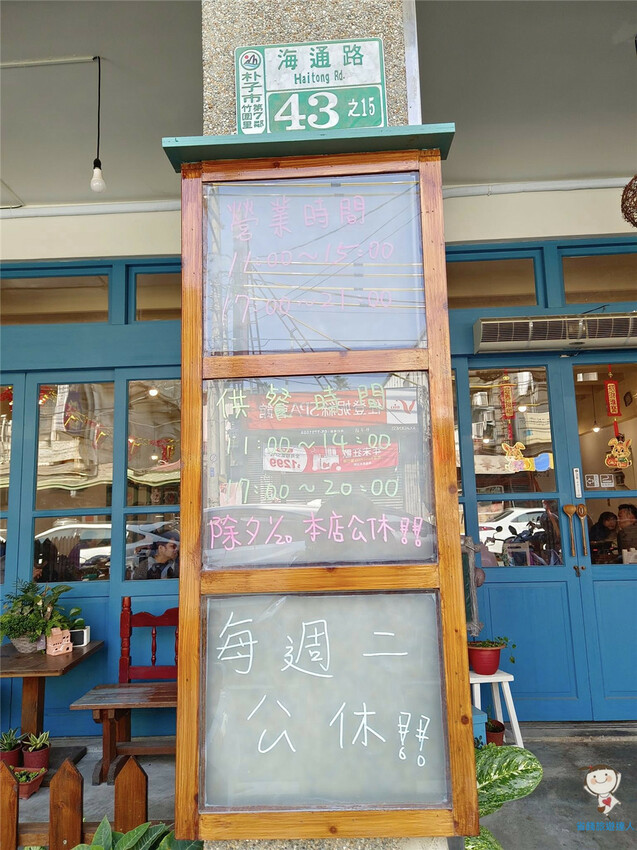 海通路
Haitong Rd.
朴子市
竹圍里
第7鄰
43之15
營業時間
11:00～15:00
17:00～21:00
供餐時間
11:00～14:00
17:00～20:00
除夕1/20 本店公休!!
$1299
每週二
公休!!